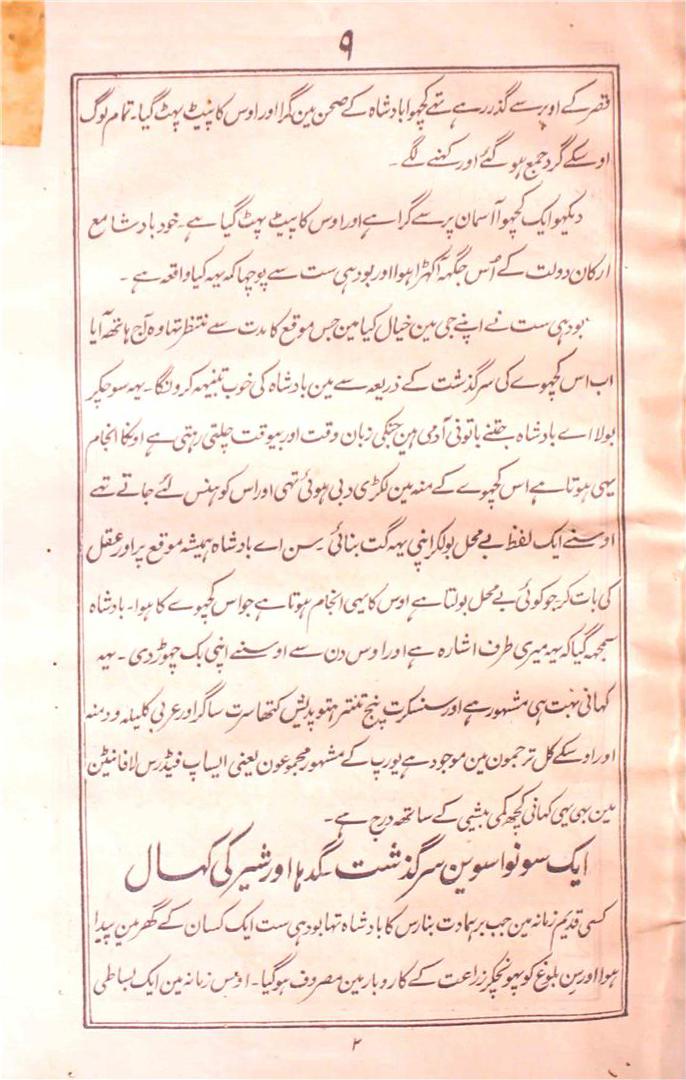 ۹
قصر کے اوپر سے گذر رہے تہے کچھوا بادشاہ کے صحن مین گرا اور اوس کا پیٹ پہٹ گیا۔ تمام لوگ
اوسکے گرد جمع ہو گئے اور کہنے لگے۔
دیکھو ایک کچھوا آسمان پر سے گرا ہے اور اوس کا پیٹ پہٹ گیا ہے۔ خود بادشا مع
ارکان دولت کے اُس جگہہ آکہڑا ہوا اور بودہی ست سے پوچہا کہ یہہ کیا واقعہ ہے۔
بودہی ست نے اپنے جی مین خیال کیا مین جس موقع کا مدت سے منتظر تہا وہ آج ہاتھہ آیا
اب اس کچھوے کی سرگذشت کے ذریعہ سے مین بادشاہ کی خوب تنبیہہ کرونگا۔ یہہ سوچکر
بولا اے بادشاہ جتنے باتونی آدمی ہین جنکی زبان وقت اور بیوقت چلتی رہتی ہے اونکا انجام
یہی ہوتا ہے اس کچھوے کے منہ مین لکڑی دبی ہوئی تہی اور اس کو ہنس لئے جاتے تہے
اوسنے ایک لفظ بے محل بولکر اپنی یہہ گت بنائی۔ سن اے بادشاہ ہمیشہ موقع پر اور عقل
کی بات کر جو کوئی بے محل بولتا ہے اوس کا یہی انجام ہوتا ہے جو اس کچھوے کا ہوا۔ بادشاہ
سمجہہ گیا کہ یہہ میری طرف اشارہ ہے اور اوس دن سے اوسنے اپنی بک چہوڑ دی۔ یہہ
کہانی بہت ہی مشہور ہے اور سنسکرت پنچ تنتر ہتوپدیش کتھا سرت ساگر اور عربی کلیلہ و دمنہ
اور اوسکے کل ترجمون مین موجود ہے یورپ کے مشہور مجموعون یعنی ایساپ فیڈرس لافانٹین
مین بہی یہی کہانی کچھ کمی بیشی کے ساتھ درج ہے۔
ایک سو نواسوین سرگذشت۔ گدہا اور شیر کی کہال
کسی قدیم زمانہ مین جب برہمادت بنارس کا بادشاہ تہا بودہی ست ایک کسان کے گھر مین پیدا
ہوا اور سن بلوغ کو پہونچکر زراعت کے کاروبار مین مصروف ہو گیا۔ اوس زمانہ مین ایک بساطی
۲